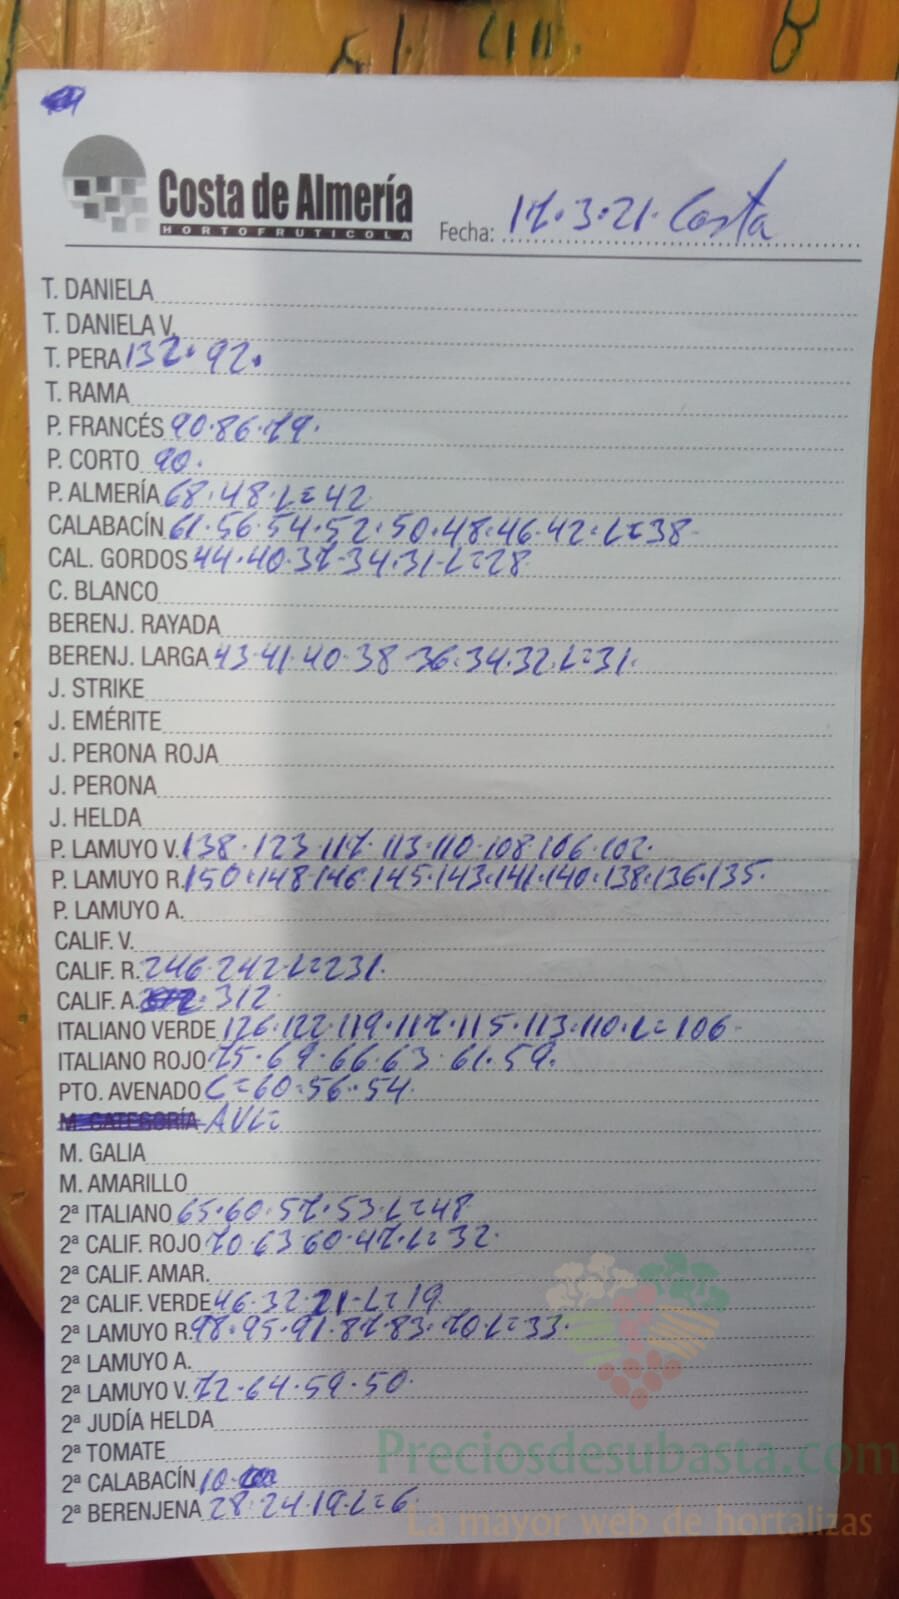 Costa de Almería
HORTOFRUTICOLA
Fecha: 17.3.21. Costa
T. DANIELA
T. DANIELA V.
T. PERA 137. 92.
T. RAMA
P. FRANCÉS 90.86.79.
P. CORTO 90.
P. ALMERÍA 68.48.L=42
CALABACÍN 61.56.54.52.50.48.46.42.L=38
CAL. GORDOS 44.40.37.34.31.L=28
C. BLANCO
BERENJ. RAYADA
BERENJ. LARGA 43.41.40.38.36.34.32.L=31.
J. STRIKE
J. EMÉRITE
J. PERONA ROJA
J. PERONA
J. HELDA
P. LAMUYO V. 138.123.117.113.110.108.106.102.
P. LAMUYO R. 150.148.146.145.143.141.140.138.136.135.
P. LAMUYO A.
CALIF. V.
CALIF. R. 246.242.L=231.
CALIF. A. 312
ITALIANO VERDE 126.122.119.117.115.113.110.L=106
ITALIANO ROJO 75.69.66.63.61.59.
PTO. AVENADO L=60.56.54
M. CATEGORÍA AVL=
M. GALIA
M. AMARILLO
2ª ITALIANO 65.60.57.53.L=48
2ª CALIF. ROJO 70.63.60.47.L=32.
2ª CALIF. AMAR.
2ª CALIF. VERDE 46.32.21.L=19
2ª LAMUYO R. 98.95.91.87.83.70.L=33.
2ª LAMUYO A.
2ª LAMUYO V. 72.64.59.50.
2ª JUDÍA HELDA
2ª TOMATE
2ª CALABACÍN 10.
2ª BERENJENA 28.24.19.L=6
Preciosdesubasta.com
La mayor web de hortalizas